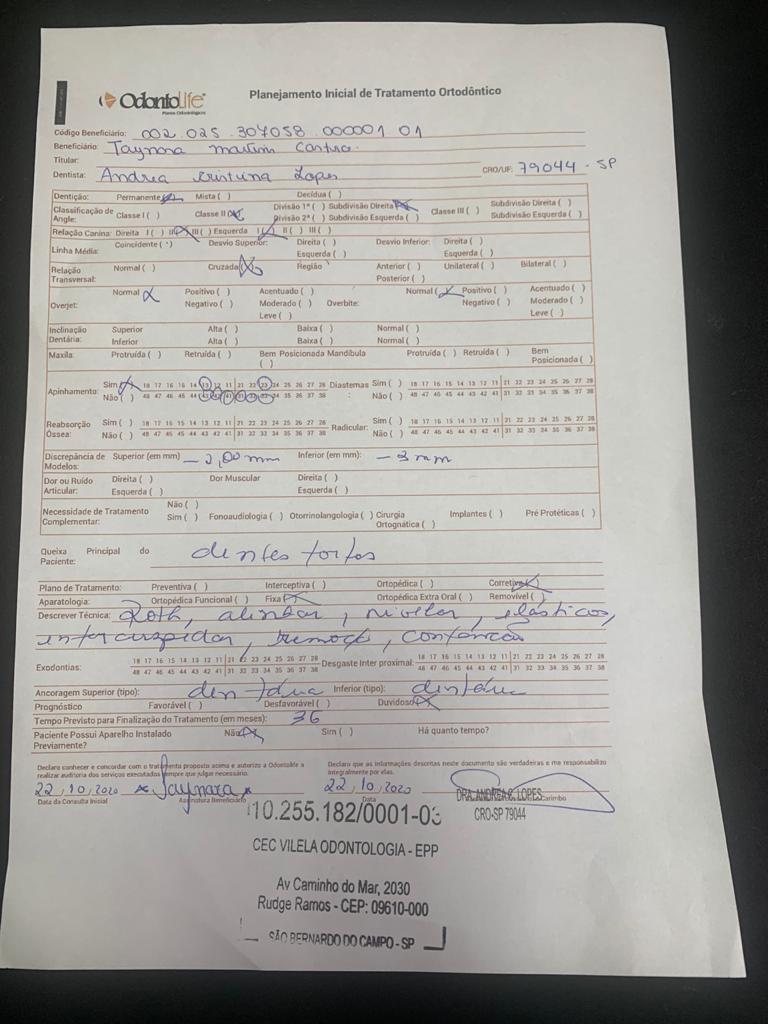 OdontoLife
Planos Odontológicos
Planejamento Inicial de Tratamento Ortodôntico
Código Beneficiário: 002.025.307058.000001 01
Beneficiário: Taynara
Titular:
Dentista: Andrea Cristina Lopes CRO/UF: 79044 - SP
Dentição: Permanente Mista ( ) Decídua ( )
Classificação de Angle: Classe I ( ) Classe II (X) Divisão 1ª ( ) Subdivisão Direita (X) Classe III ( ) Subdivisão Direita ( )
Divisão 2ª ( ) Subdivisão Esquerda ( ) Subdivisão Esquerda ( )
Relação Canina: Direita I ( ) II (X) III ( ) Esquerda I (X) II ( ) III ( )
Linha Média: Coincidente ( ) Desvio Superior: Direita ( ) Desvio Inferior: Direita ( )
Esquerda ( ) Esquerda ( )
Relação Transversal: Normal ( ) Cruzada (X) Região Anterior ( ) Unilateral ( ) Bilateral ( )
Posterior ( )
Overjet: Normal (X) Positivo ( ) Acentuado ( ) Overbite: Normal (X) Positivo ( ) Acentuado ( )
Negativo ( ) Moderado ( ) Negativo ( ) Moderado ( )
Leve ( ) Leve ( )
Inclinação Dentária: Superior Alta ( ) Baixa ( ) Normal ( )
Inferior Alta ( ) Baixa ( ) Normal ( )
Maxila: Protruída ( ) Retruída ( ) Bem Posicionada ( ) Mandíbula Protruída ( ) Retruída ( ) Bem Posicionada ( )
Apinhamento: Sim (X) 18 17 16 15 14 13 12 11 21 22 23 24 25 26 27 28 Diastemas: Sim ( ) 18 17 16 15 14 13 12 11 21 22 23 24 25 26 27 28
Não ( ) 48 47 46 45 44 43 42 41 31 32 33 34 35 36 37 38 Não ( ) 48 47 46 45 44 43 42 41 31 32 33 34 35 36 37 38
Reabsorção Óssea: Sim ( ) 18 17 16 15 14 13 12 11 21 22 23 24 25 26 27 28 Radicular: Sim ( ) 18 17 16 15 14 13 12 11 21 22 23 24 25 26 27 28
Não ( ) 48 47 46 45 44 43 42 41 31 32 33 34 35 36 37 38 Não ( ) 48 47 46 45 44 43 42 41 31 32 33 34 35 36 37 38
Discrepância de Modelos: Superior (em mm) - 2,00 mm Inferior (em mm): - 3 mm
Dor ou Ruído Articular: Direita ( ) Dor Muscular Direita ( )
Esquerda ( ) Esquerda ( )
Necessidade de Tratamento Complementar: Não ( )
Sim ( ) Fonoaudiologia ( ) Otorrinolangologia ( ) Cirurgia Ortognática ( ) Implantes ( ) Pré Protéticas ( )
Queixa Principal do Paciente: dentes tortos
Plano de Tratamento: Preventiva ( ) Interceptiva ( ) Ortopédica ( ) Corretiva (X)
Aparatologia: Ortopédica Funcional ( ) Fixa (X) Ortopédica Extra Oral ( ) Removível ( )
Descrever Técnica: Roth, alinhar, nivelar, elásticos,
intercuspidar,
Exodontias: 18 17 16 15 14 13 12 11 21 22 23 24 25 26 27 28 Desgaste Inter proximal: 18 17 16 15 14 13 12 11 21 22 23 24 25 26 27 28
48 47 46 45 44 43 42 41 31 32 33 34 35 36 37 38 48 47 46 45 44 43 42 41 31 32 33 34 35 36 37 38
Ancoragem Superior (tipo): dentária Inferior (tipo): dentária
Prognóstico Favorável ( ) Desfavorável ( ) Duvidoso (X)
Tempo Previsto para Finalização do Tratamento (em meses): 36
Paciente Possui Aparelho Instalado Previamente? Não (X) Sim ( ) Há quanto tempo?
Declaro conhecer e concordar com o tratamento proposto acima e autorizo a Odontolife a
realizar auditoria dos serviços executados sempre que julgar necessário.
Declaro que as informações descritas neste documento são verdadeiras e me responsabilizo
integralmente por elas.
22,10,2020 Taynara 22,10,2020
DRA. ANDREA C. LOPES
CRO-SP 79044
Data da Consulta Inicial Assinatura Beneficiário Data Carimbo
10.255.182/0001-03
CEC VILELA ODONTOLOGIA - EPP
Av Caminho do Mar, 2030
Rudge Ramos - CEP: 09610-000
SÃO BERNARDO DO CAMPO - SP